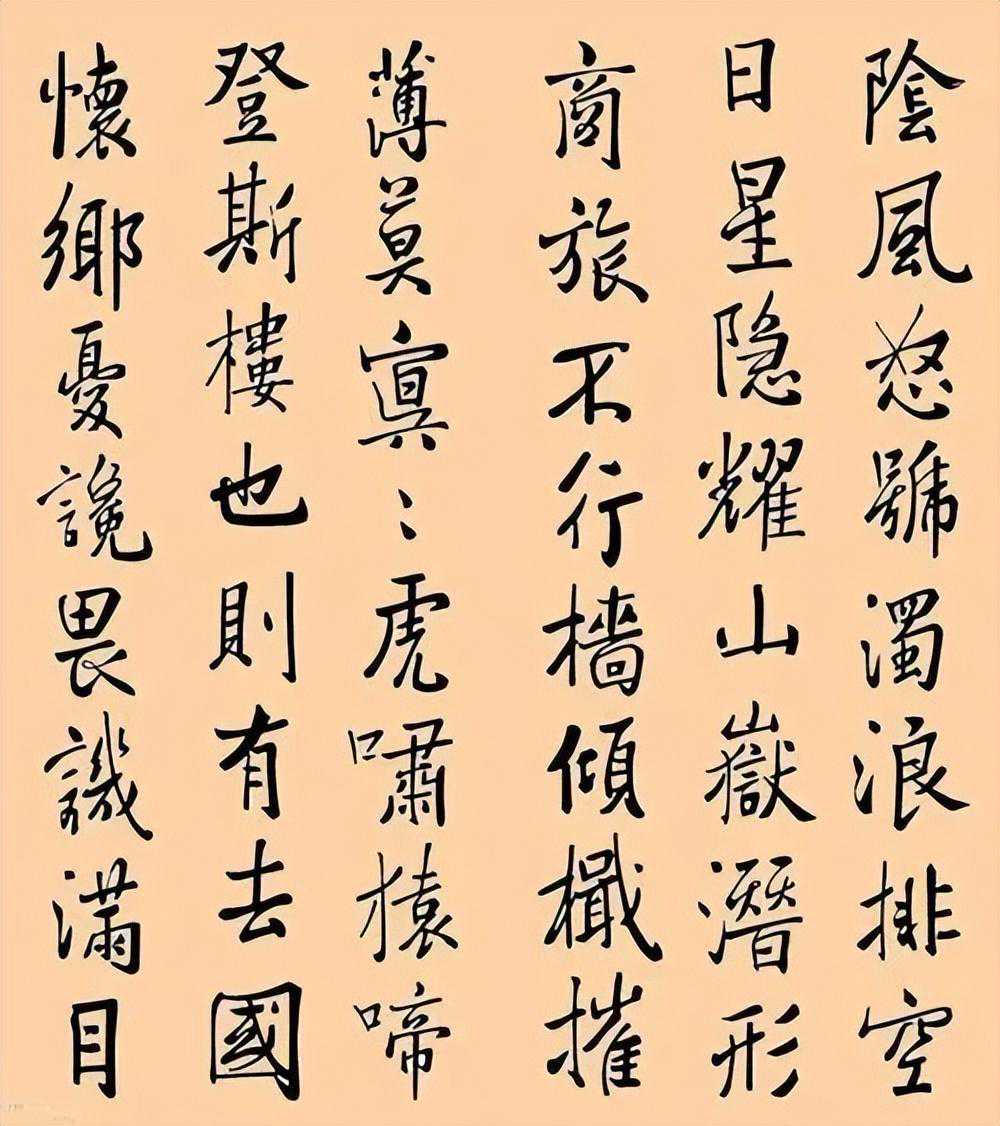 陰風怒號濁浪排空
日星隐耀山嶽潛形
商旅不行檣傾檝摧
薄莫㝠〻虎嘯猿啼
登斯樓也則有去國
懷鄉憂讒畏譏滿目